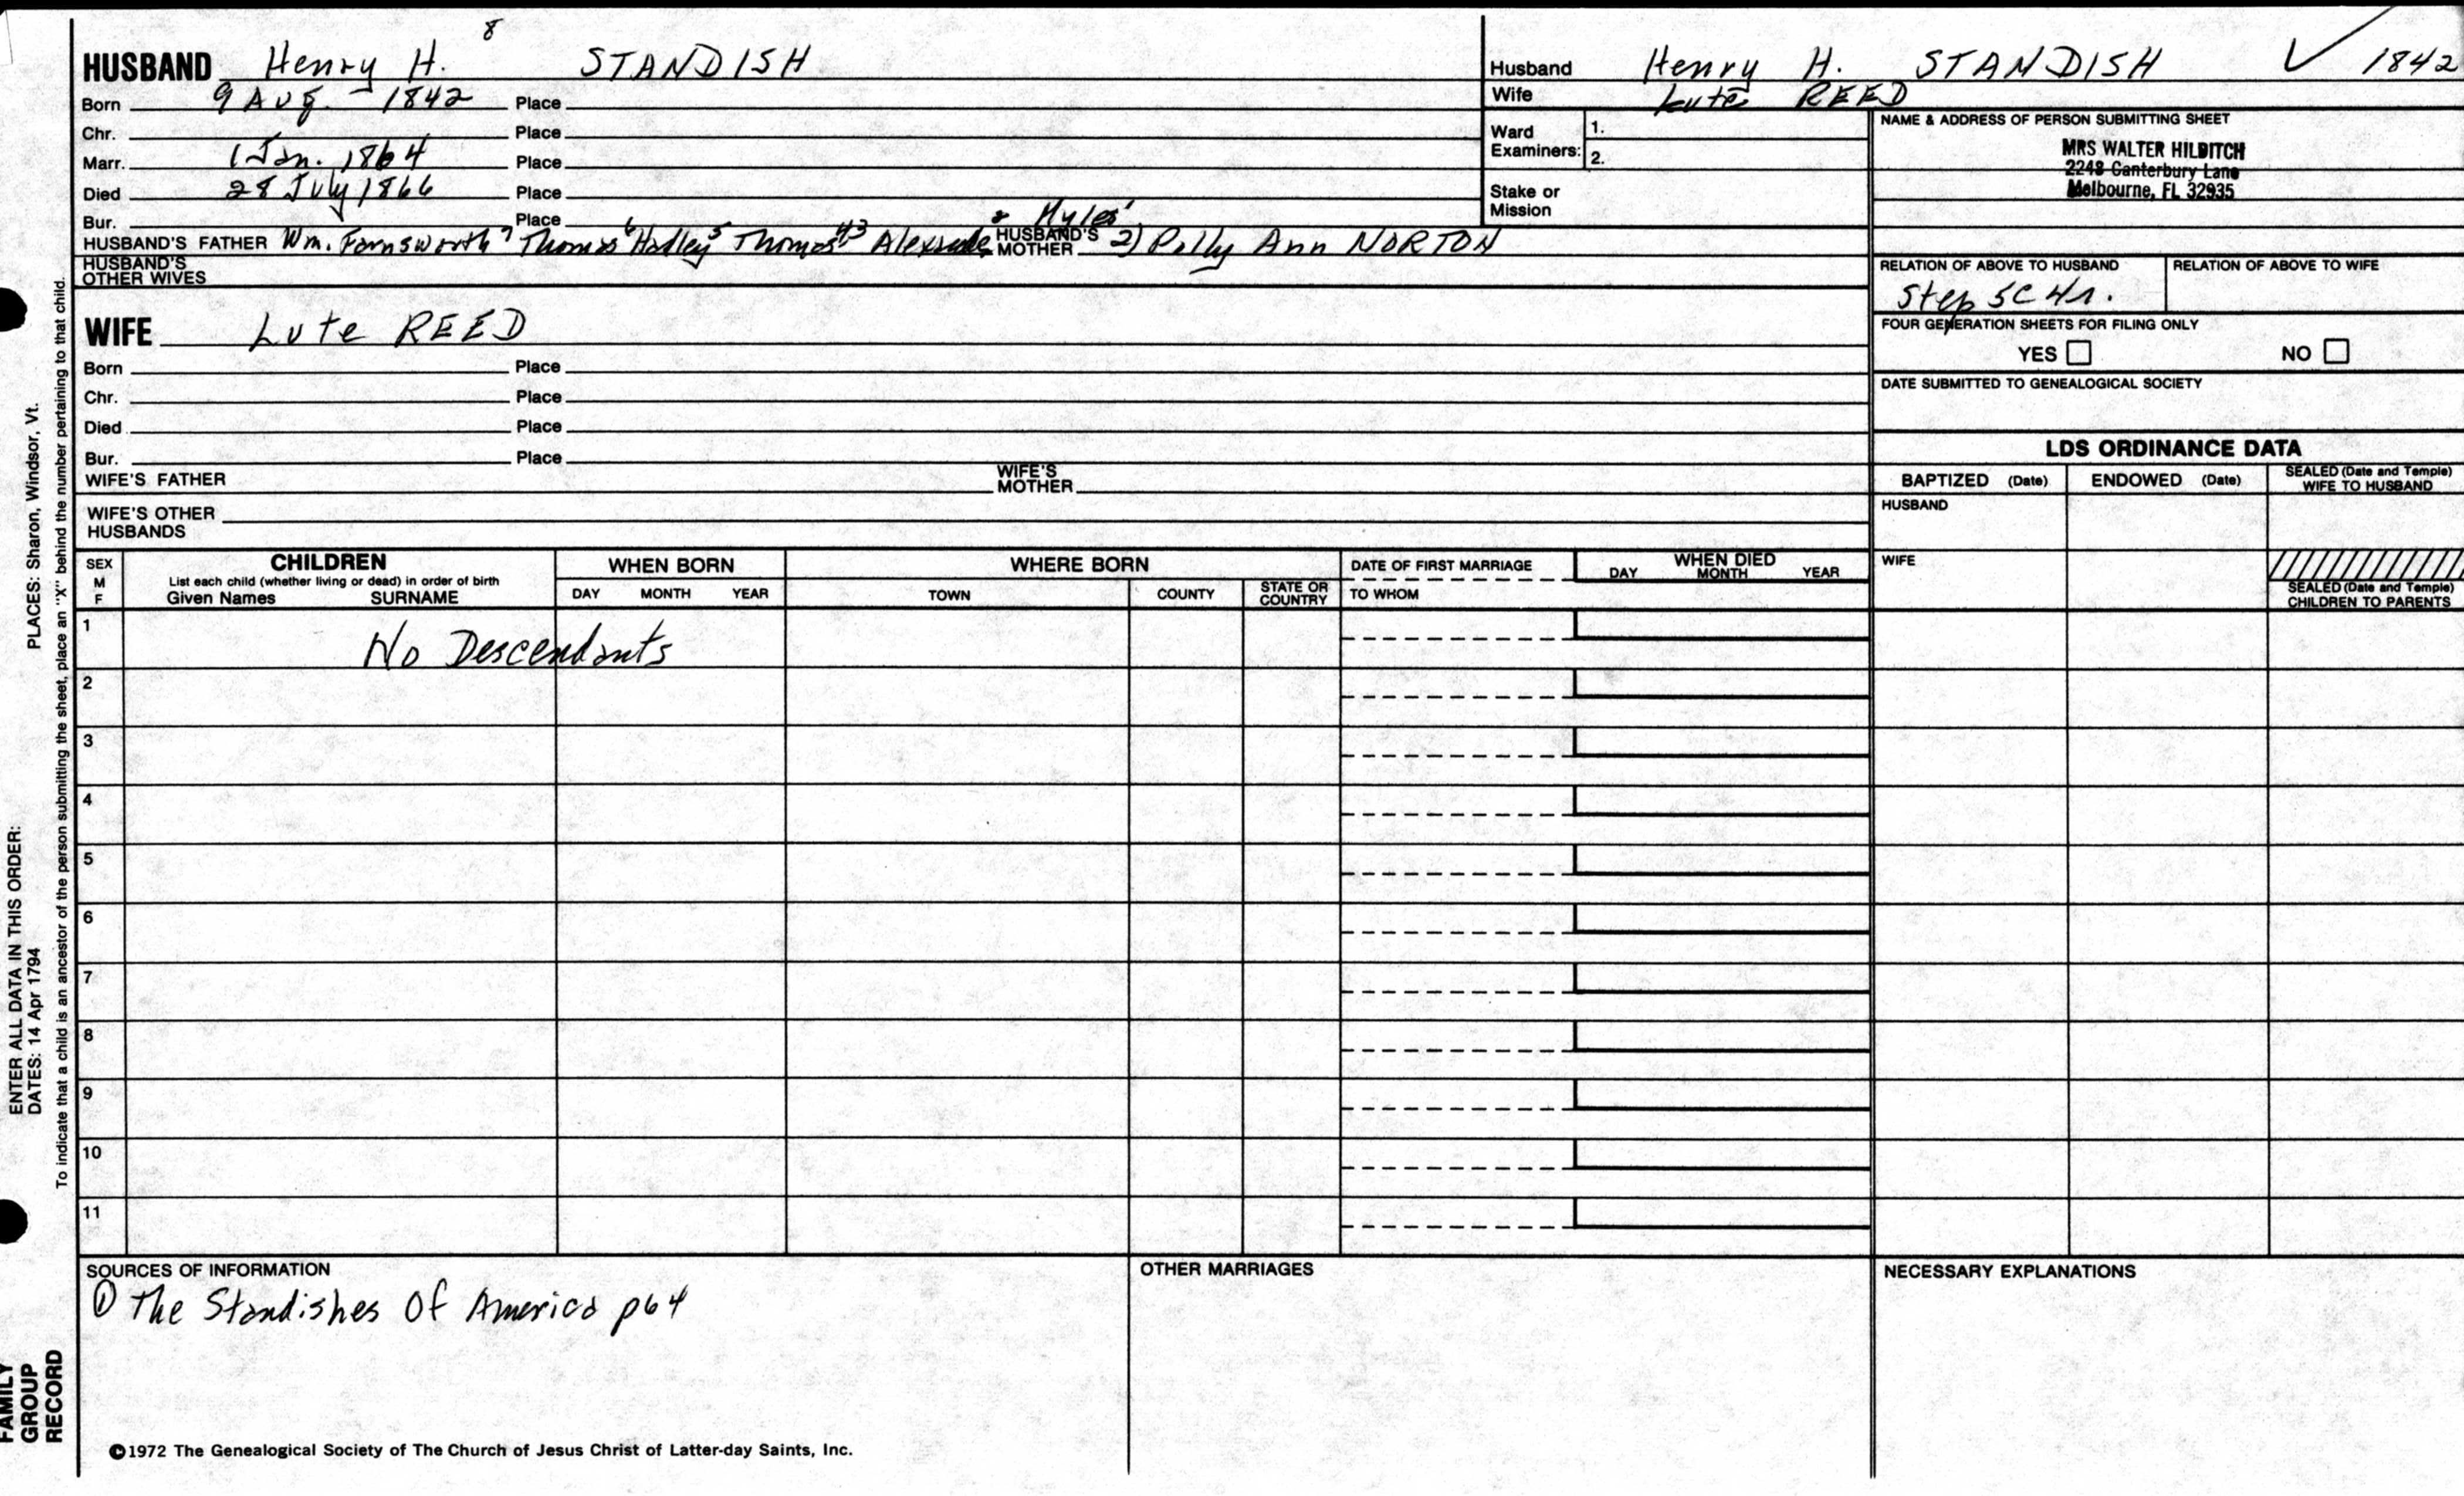 8
HUSBAND Henry H. STANDISH
Born 9 Aug. 1842 Place
Chr. Place
Marr. 1 Jan. 1864 Place
Died 28 July 1866 Place
Bur. Place
2 Myles 1
HUSBAND'S FATHER Wm. Farnsworth 7 Thomas 6 Hadley 5 Thomas 4 3 Alexande HUSBAND'S MOTHER 2) Polly Ann NORTON
HUSBAND'S OTHER WIVES
WIFE Lute REED
Born Place
Chr. Place
Died Place
Bur. Place
WIFE'S FATHER WIFE'S MOTHER
WIFE'S OTHER HUSBANDS
Husband Henry H. STANDISH ✓ 1842
Wife Lute REED
Ward Examiners: 1.
2.
Stake or Mission
NAME & ADDRESS OF PERSON SUBMITTING SHEET
MRS WALTER HILDITCH
2248 Canterbury Lane
Melbourne, FL 32935
RELATION OF ABOVE TO HUSBAND RELATION OF ABOVE TO WIFE
Step 5C 4r.
FOUR GENERATION SHEETS FOR FILING ONLY
YES NO
DATE SUBMITTED TO GENEALOGICAL SOCIETY
LDS ORDINANCE DATA
BAPTIZED (Date) ENDOWED (Date) SEALED (Date and Temple) WIFE TO HUSBAND
HUSBAND
WIFE
SEALED (Date and Temple) CHILDREN TO PARENTS
SEX M F
CHILDREN
List each child (whether living or dead) in order of birth
Given Names SURNAME
WHEN BORN
DAY MONTH YEAR
WHERE BORN
TOWN COUNTY STATE OR COUNTRY
DATE OF FIRST MARRIAGE
TO WHOM
WHEN DIED
DAY MONTH YEAR
1 No Descendants
2
3
4
5
6
7
8
9
10
11
SOURCES OF INFORMATION
① The Standishes Of America p64
OTHER MARRIAGES
NECESSARY EXPLANATIONS
©1972 The Genealogical Society of The Church of Jesus Christ of Latter-day Saints, Inc.
ENTER ALL DATA IN THIS ORDER: PLACES: Sharon, Windsor, Vt.
DATES: 14 Apr 1794
To indicate that a child is an ancestor of the person submitting the sheet, place an "X" behind the number pertaining to that child.
FAMILY
GROUP
RECORD